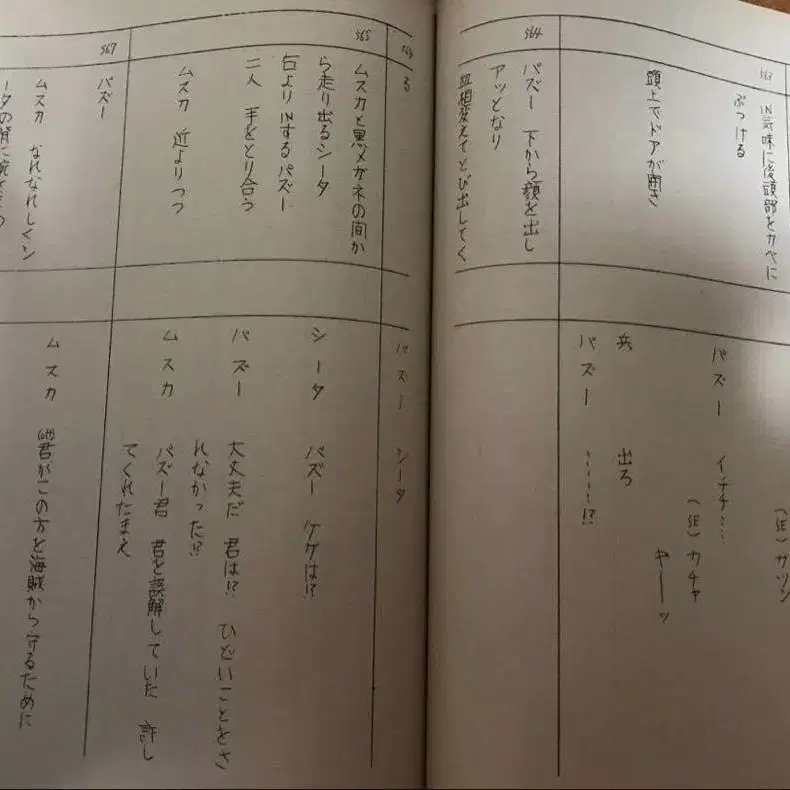 563
IN気味に後頭部をカベに
ぶつける
(SE) ガツン
パズー イテテ……
頭上でドアが開き
(SE) カチャ
ギーッ
兵 出ろ
パズー ……!?
564
パズー 下から顔を出し
アッとなり
血相変えてとび出してく
る
パズー シータ
565
ムスカと黒メガネの間か
ら走り出るシータ
右よりINするパズー
二人 手をとり合う
シータ パズー ケガは!?
パズー 大丈夫だ 君は!? ひどいことをさ
れなかった!?
ムスカ 近よりつつ
ムスカ パズー君 君を誤解していた 許し
てくれたまえ
567
パズー
ムスカ なれなれしくシ
ータの背に腕を
ムスカ 君がこの方を海賊から守るために